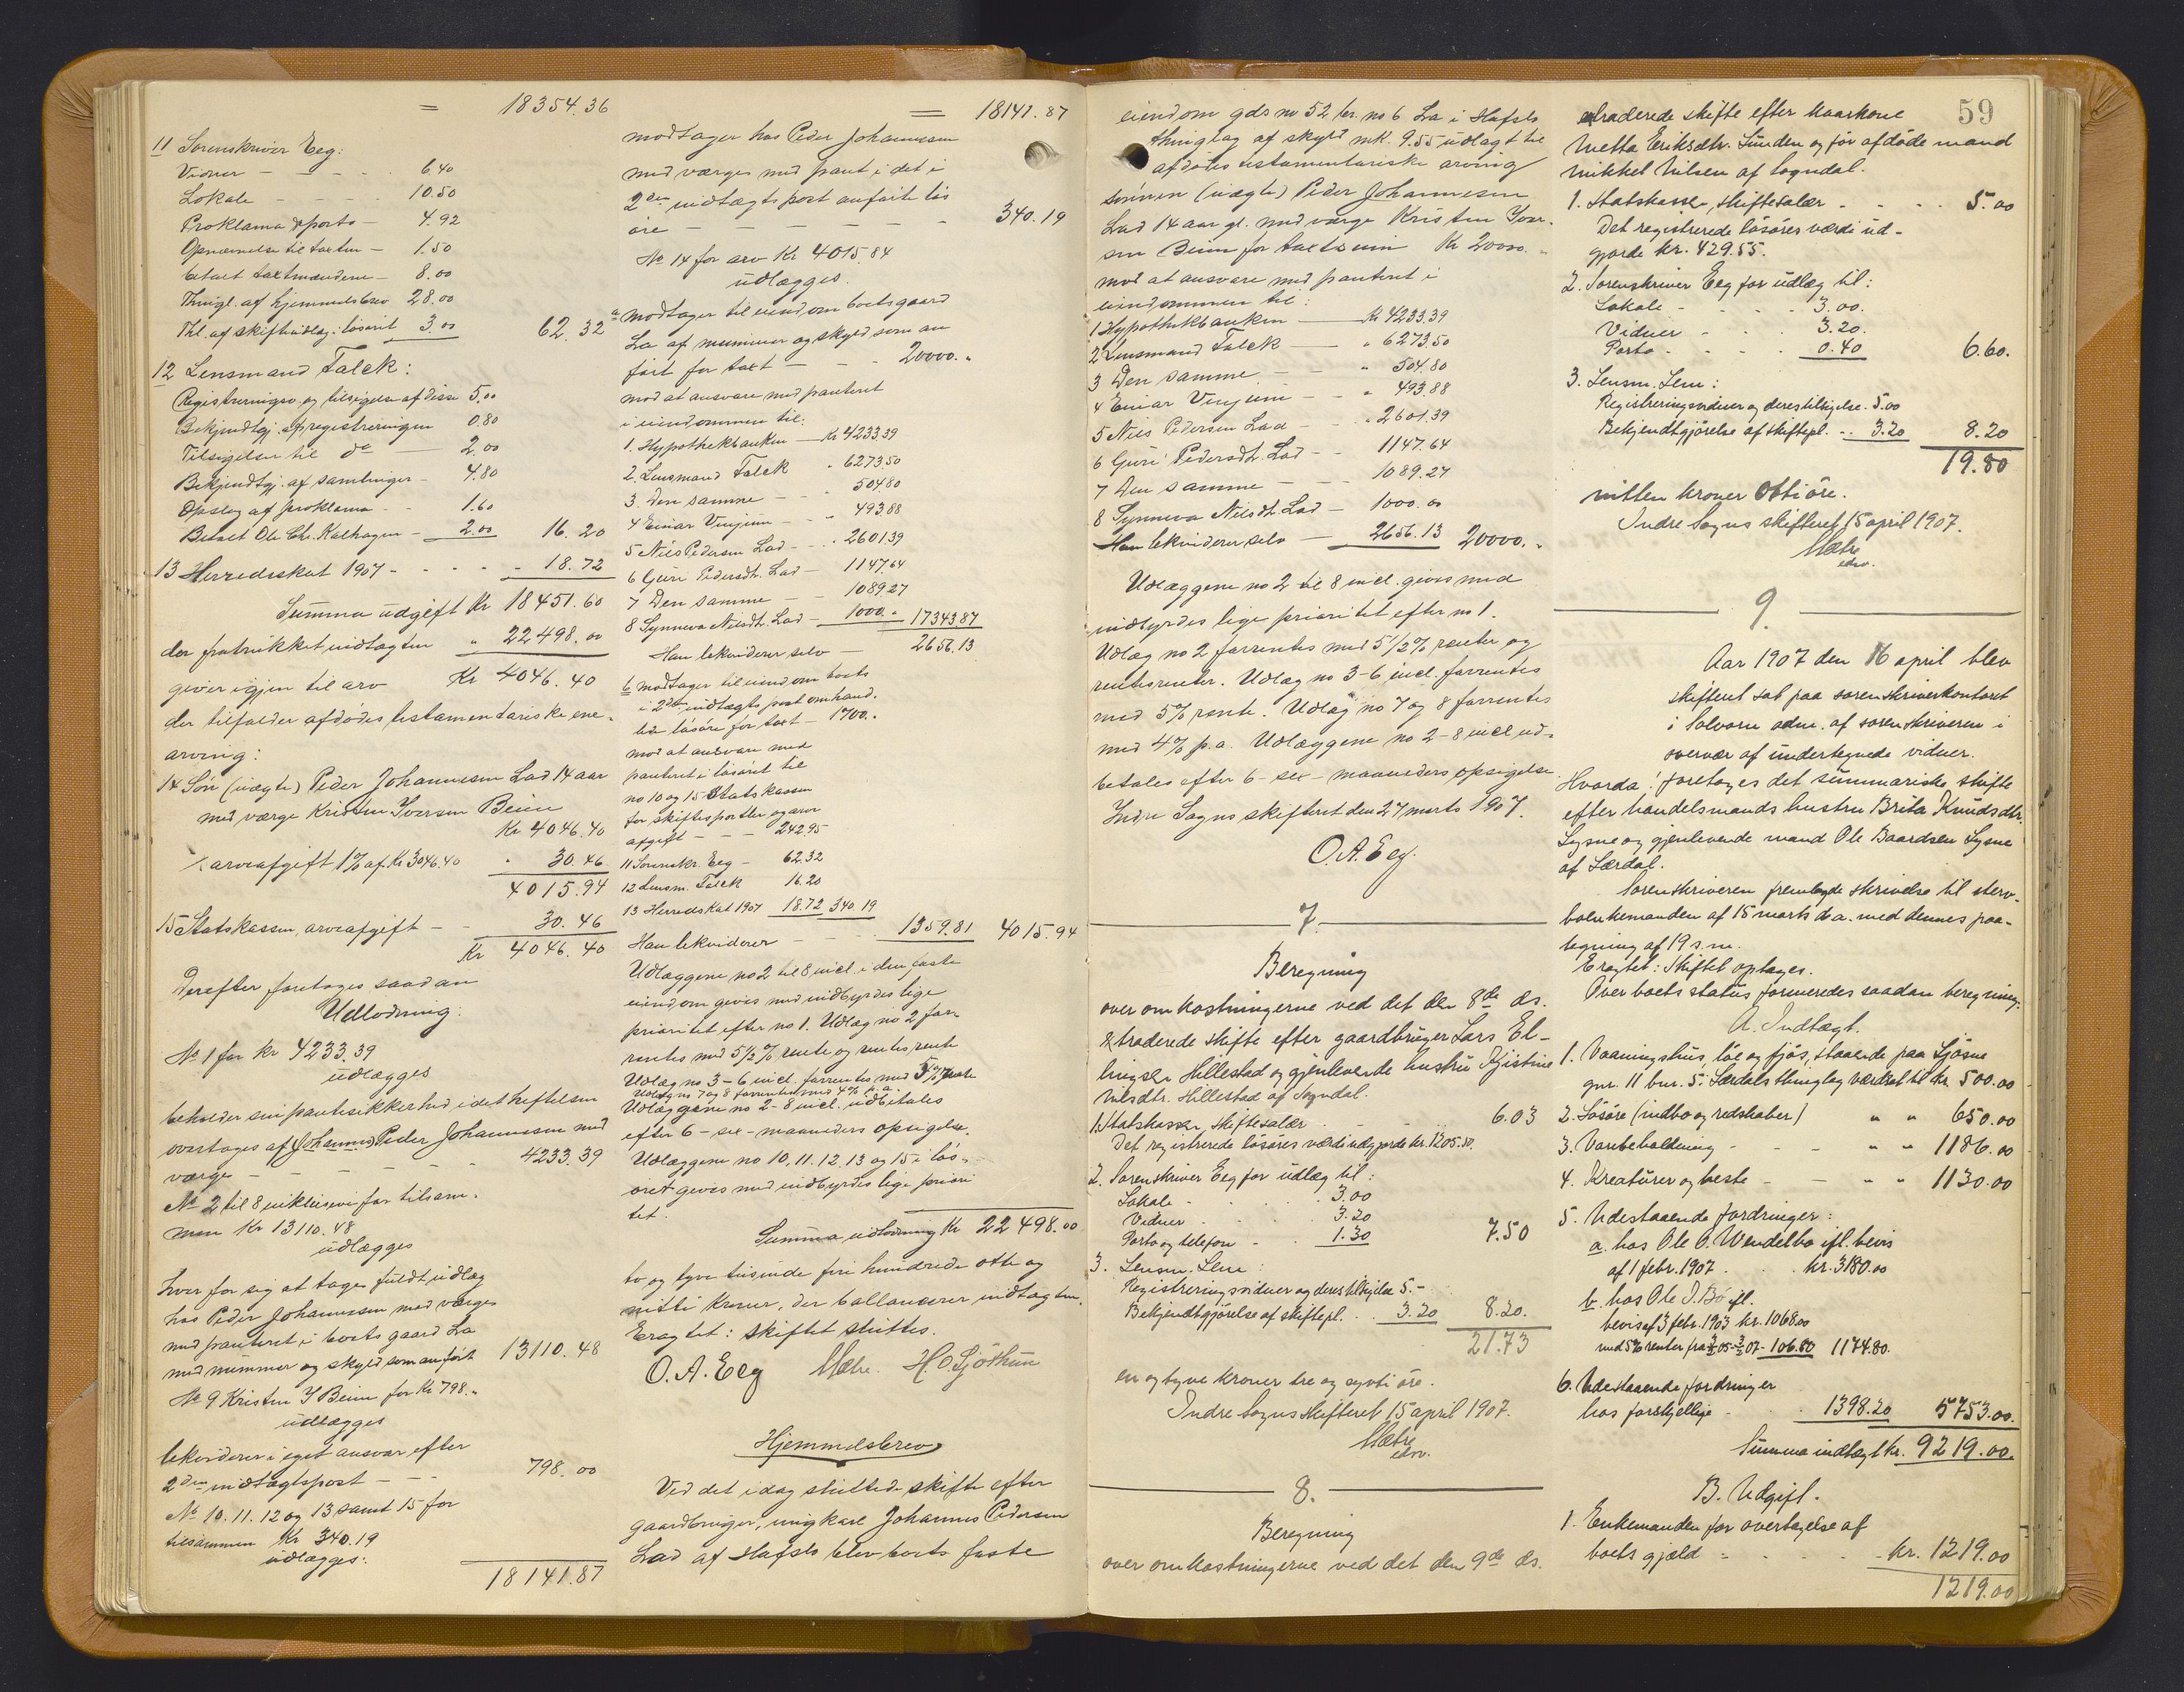 = 18354.36
11 Sorenskriver Eeg:
Vidner - - - 6.40
Lokale - - - 10.50
Proklama & porto - 4.92
Opnævnelse til taxten - 1.50
betalt taxtmændene - 8.00
Thingl. af hjemmelsbrev 28.00
Thl. af skifteudlæg i løsøret 3.00 62.32
12 Lensmand Falck:
Registreringsv. og tilsigelse af disse 5.00
Bekjendtgj. af registreringen 0.80
Tilsigelser til do 2.00
Bekjendtgj. af samlinger - 4.80
Opslag af proklama - - 1.60
Betalt Ole Chr. Kalhagen - 2.00 16.20
13 Herredsskat 1907 - - - - 18.72
Summa udgift Kr 18451.60
der fratrukket indtægten " 22498.00
giver igjen til arv Kr 4046.40
der tilfalder afdødes testamentariske ene-
arving:
14 Søn (uægte) Peder Johannesen Lad 14 aar
med værge Kristen Iversen Beim
Kr 4046.40
÷ arveafgift 1% af Kr 3046.40 " 30.46
4015.94
15 Statskassen, arveafgift - - 30.46
Kr 4046.40
Derefter foretoges saadan
Udlodning:
No 1 for Kr 4233.39
udlægges
beholder sin pantesikkerhed idet heftelsen
overtages af Johannes Peder Johannesen med
værge - - - - - 4233.39
No 2 til 8 inklusive for tilsam-
men Kr 13110.48
udlægges
hver for sig at tage fuldt udlæg
hos Peder Johannesen med værges
med panteret i boets gaard La
med nummer og skyld som anført 13110.48
No 9 Kristen I Beim for Kr 798.-
udlægges
likviderer i eget ansvar efter
2den indtægtspost - - - 798.00
No 10. 11. 12 og 13 samt 15 for
tilsammen Kr 340.19
udlægges:
18141.87
= 18141.87
modtager hos Peder Johannesen
med værges med pant i det i
2den indtægtspost anførte løs
øre - - - - - 340.19
No 14 for arv Kr 4015.84
udlægges.
a modtager til eiendom boets gaard
La af nummer og skyld som an
ført for taxt - - - 20000.-
mod at ansvare med panteret
i eiendommen til:
1. Hypothekbanken - Kr 4233.39
2. Lensmand Falck " 6273.50
3. Den samme - - " 504.80
4 Einar Vinjum - - " 493.88
5 Nils Pedersen Lad - - " 2601.39
6 Guri Pedersdtr. Lad - 1147.64
7 Den samme - - 1089.27
8 Synneva Nilsdtr. Lad - 1000.- 17343.87
Han likviderer selv - 2656.13
b modtager til eiendom boets
i 2den indtægtspost omhand-
lede løsøre for taxt - 1700.-
mod at ansvare med
panteret i løsøret til
no 10 og 15 Statskassen
for skiftesportler og arve
afgift - - - 242.95
11 Sorenskr. Eeg - 62.32
12 Lensm. Falck 16.20
13 Herredsskat 1907 18.72 340.19
Han likviderer - - - 1359.81 4015.94
Udlæggene no 2 til 8 incl. i den faste
eiendom gives med indbyrdes lige
prioritet efter no 1. Udlæg no 2 for-
rentes med 5½% rente og rentesrente
Udlæg no 3-6 incl. forrentes med 5% rente
Udlæg no 7 og 8 forrentes med 4% p. a.
Udlæggene no 2-8 incl. udbetales
efter 6 - sex - maaneders opsigelse.
Udlæggene no 10, 11. 12. 13 og 15 i løs-
øret gives med indbyrdes lige priori
tet.
Summa udlodning Kr 22498.00
to og tyve tusinde fire hundrede otte og
nitti kroner, der ballancerer indtægten.
Eragtet: skiftet sluttes.
O. A. Eeg Mæhre. H. O. Sjøthun
Hjemmelsbrev
Ved det idag sluttede skifte efter
gaardbruger, ungkarl Johannes Pedersen
Lad af Hafslo blev boets faste
59
eiendom gds no 52 br. no 6 La i Hafslo
thinglag af skyld mk. 9.55 udlagt til
afdødes testamentariske arving
sønnen (uægte) Peder Johannesen
Lad 14 aar gl. med værge Kristen Iver-
sen Beim for taxtsum Kr 20000.-
mod at ansvare med panteret i
eiendommen til:
1 Hypothekbanken - Kr 4233.39
2 Lensmand Falck - " 6273.50
3 Den samme - - " 504.80
4 Einar Vinjum - - " 493.88
5 Nils Pedersen Lad - - " 2601.39
6 Guri Pedersdtr. Lad - - 1147.64
7 Den samme - - 1089.27
8 Synneva Nilsdtr. Lad - 1000.00
Han likviderer selv - 2656.13 20000.-
Udlæggene no 2 til 8 incl. gives med
indbyrdes lige prioritet efter no 1.
Udlæg no 2 forrentes med 5 1/2% renter og
rentesrenter. Udlæg no 3-6 incl. forrentes
med 5% rente. Udlæg no 7 og 8 forrentes
med 4% p. a. Udlæggene no 2-8 incl ud-
betales efter 6 - sex - maaneders opsigelse.
Indre Sogns skifteret den 27 marts 1907.
O. A. Eeg.
7.
Beregning
over omkostningerne ved det den 8de ds.
extraderede skifte efter gaardbruger Lars El-
lingsen Hillestad og gjenlevende hustru Kjistine
Nilsdtr. Hillestad af Sogndal.
1. Statskassen, skiftesalær - - - 6.03
Det registrerede løsøres værdi udgjorde kr. 1205.50.
2. Sorenskriver Eeg for udlæg til:
Lokale - - - 3.00
Vidner - - - 3.20
Porto og telefon - - 1.30 7.50
3. Lensm. Lem:
Registreringsvidner og deres tilsigelse 5.-
Bekjendtgjørelse af skiftepl. - - 3.20 8.20.
21.73
en og tyve kroner tre og sytti øre.
Indre Sogns skifteret, 15 april 1907.
Mæhre
edsv.
8.
Beregning
over omkostningerne ved det den 9de ds.
extraderede skifte efter kaarkone
Metta Eriksdtr. Sunden og før afdøde mand
Mikkel Nilsen af Sogndal.
1. Statskassen, skiftesalær - - - - 5.00
Det registrerede løsøres værdi ud-
gjorde kr. 429.55.
2. Sorenskriver Eeg for udlæg til:
Lokale - - - 3.00.
Vidner - - - 3.20.
Porto - - - 0.40 6.60.
3. Lensm. Lem:
Registreringsvidner og deres tilsigelse. 5.00
Bekjendtgjørelse af skiftepl. - - 3.20 8.20
19.80
nitten kroner otti øre.
Indre Sogns skifteret, 15 april 1907.
Mæhre
edsv.
9.
Aar 1907 den 16 april blev
skifteret sat paa sorenskriverkontoret
i Solvorn adm. af sorenskriveren i
overvær af undertegnede vidner.
Hvorda: foretoges det summariske skifte
efter handelsmands hustru Brita Knudsdtr.
Lysne og gjenlevende mand Ole Baardsen Lysne
af Lærdal.
Sorenskriveren fremlagde skrivelse til sterv-
boenkemanden af 15 marts d. a. med dennes paa-
tegning af 19 s. m.
Eragtet: Skiftet optages.
Over boets status formeredes saadan beregning:
A. Indtægt.
1. Vaaningshus, løe og fjøs, staaende paa Ljøsne
gnr. 11 bnr. 5. Lærdals thinglag værdsat til kr. 500.00
2. Løsøre (indbo og redskaber) " " 650.00
3. Varebeholdning - - - " " 1186.00
4. Kreaturer og heste - - - " " 1130.00
5. Udestaaende fordringer:
a. hos Ole O. Wendelbo ifl. bevis
af 1 febr. 1907 - - kr. 3180.00
b. hos Ole I. Bø ifl.
bevis af 3 febr. 1903 kr. 1068.00
med 5% renter fra 3/2 05-3/2 07 - 106.80 1174.80.
6. Udestaaende fordringer
hos forskjellige - - - 1398.20 5753.00.
Summa indtægt kr. 9219.00.
B. Udgift.
1. Enkemanden for overtagelse af
boets gjæld - - - - kr. 1219.00
1219.00